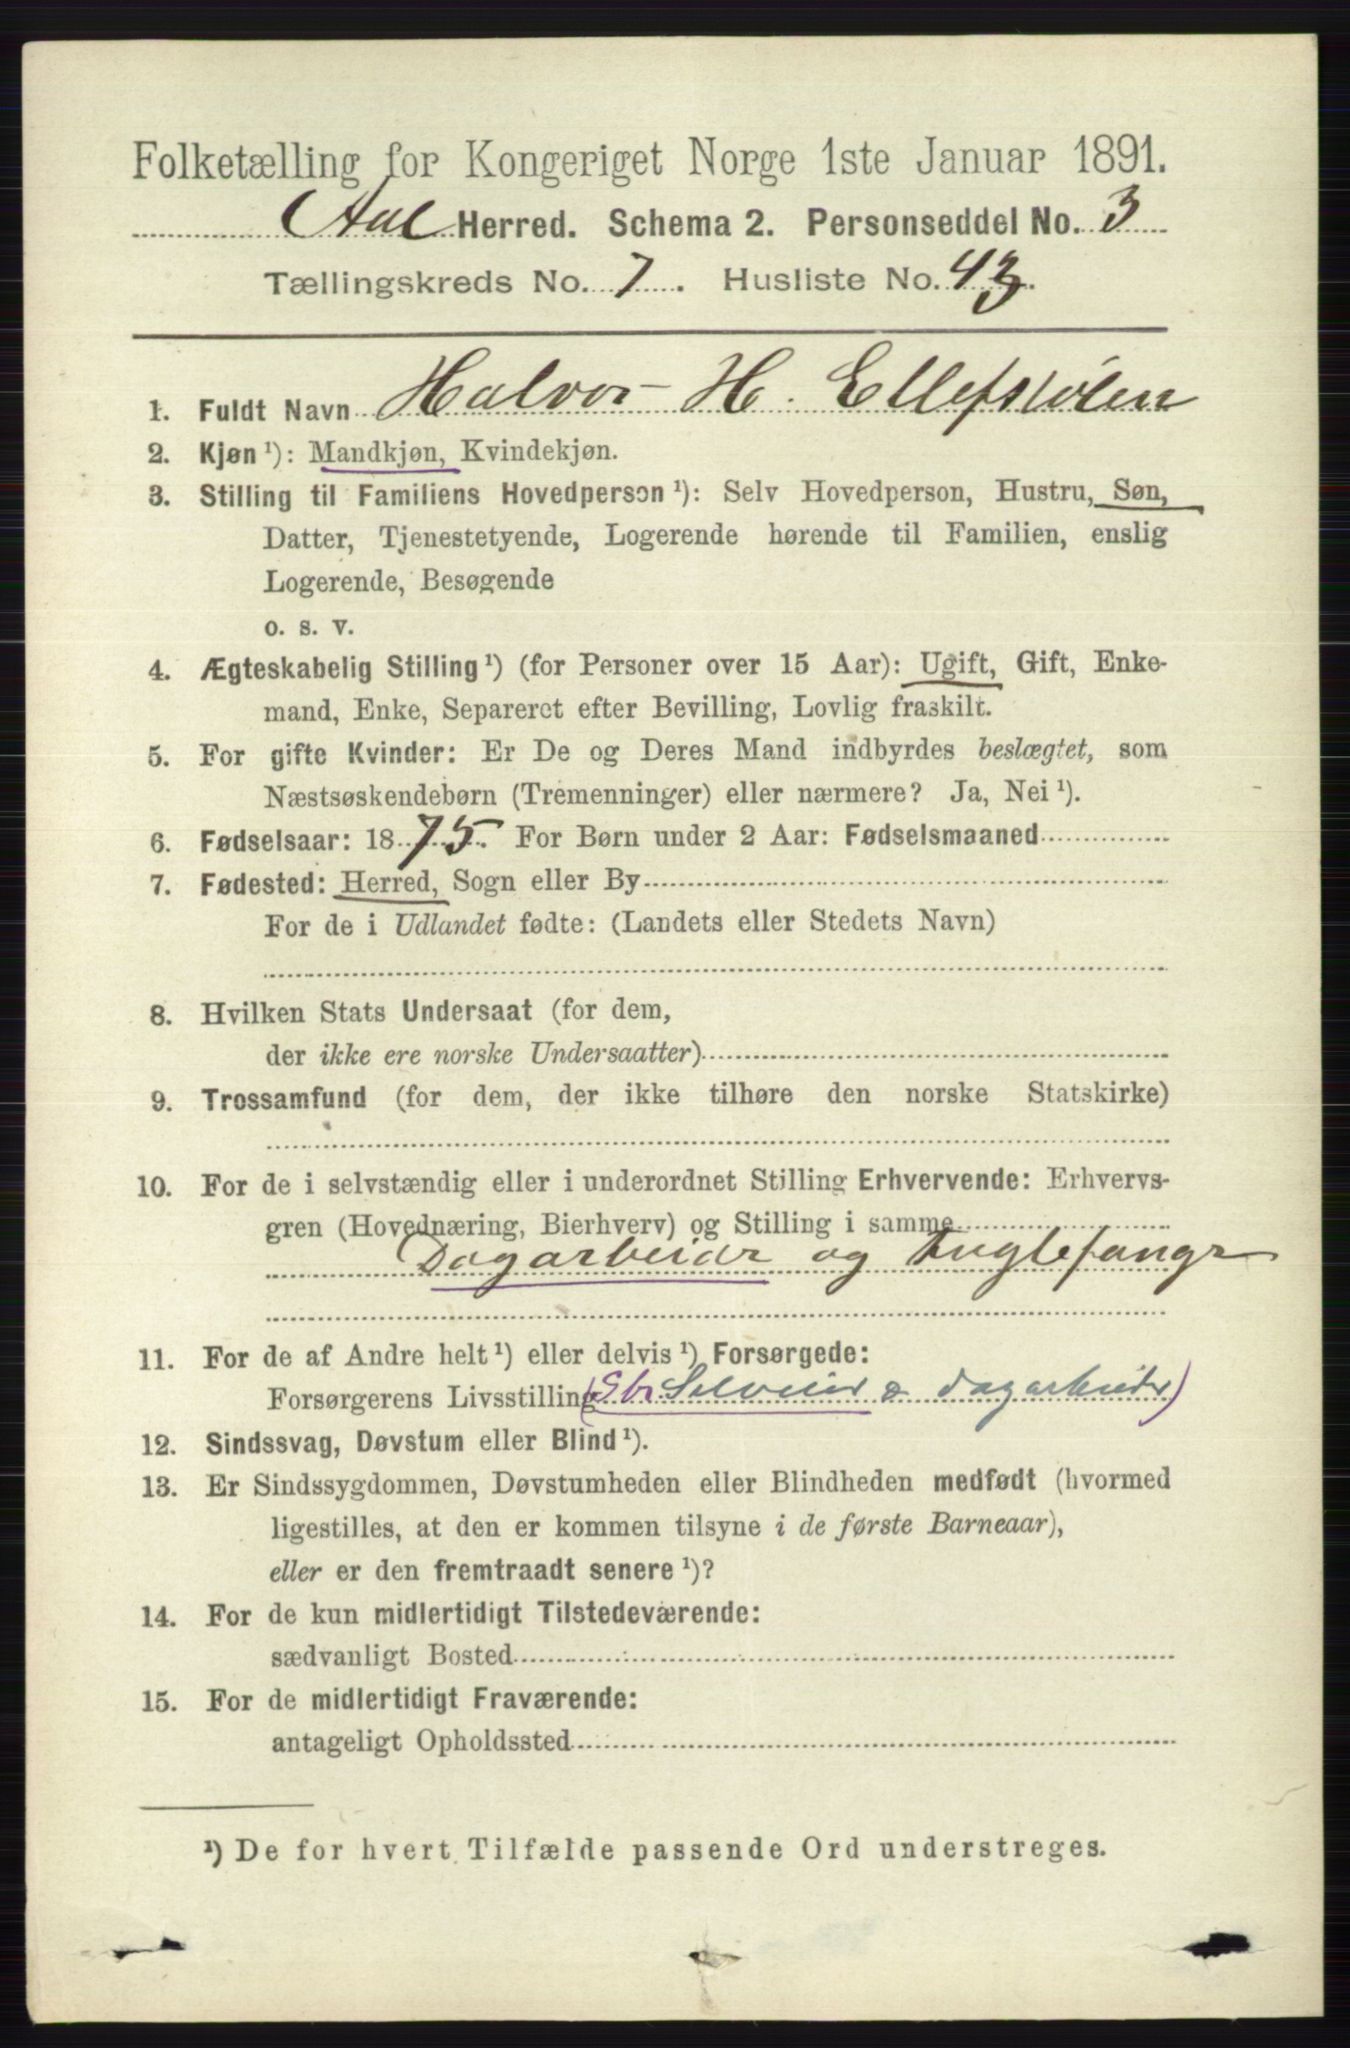 Folketælling for Kongeriget Norge 1ste Januar 1891.
Aal Herred. Schema 2. Personseddel No. 3
Tællingskreds No. 7. Husliste No. 43.
1. Fuldt Navn Halvor H. Ellefsølen
2. Kjøn ¹): Mandkjøn, Kvindekjøn.
3. Stilling til Familiens Hovedperson ¹): Selv Hovedperson, Hustru, Søn,
Datter, Tjenestetyende, Logerende hørende til Familien, enslig
Logerende, Besøgende
o. s. v.
4. Ægteskabelig Stilling ¹) (for Personer over 15 Aar): Ugift, Gift, Enke-
mand, Enke, Separeret efter Bevilling, Lovlig fraskilt.
5. For gifte Kvinder: Er De og Deres Mand indbyrdes beslægtet, som
Næstsøskendebørn (Tremenninger) eller nærmere? Ja, Nei ¹).
6. Fødselsaar: 1875. For Børn under 2 Aar: Fødselsmaaned
7. Fødested: Herred, Sogn eller By
For de i Udlandet fødte: (Landets eller Stedets Navn)
8. Hvilken Stats Undersaat (for dem,
der ikke ere norske Undersaatter)
9. Trossamfund (for dem, der ikke tilhøre den norske Statskirke)
10. For de i selvstændig eller i underordnet Stilling Erhvervende: Erhvervs-
gren (Hovednæring, Bierhverv) og Stilling i samme
Dagarbeidr og fuglefangr
11. For de af Andre helt ¹) eller delvis ¹) Forsørgede:
Forsørgerens Livsstilling (Gbr. Selveier & dagarbeider)
12. Sindssvag, Døvstum eller Blind ¹).
13. Er Sindssygdommen, Døvstumheden eller Blindheden medfødt (hvormed
ligestilles, at den er kommen tilsyne i de første Barneaar),
eller er den fremtraadt senere ¹)?
14. For de kun midlertidigt Tilstedeværende:
sædvanligt Bosted
15. For de midlertidigt Fraværende:
antageligt Opholdssted
¹) De for hvert Tilfælde passende Ord understreges.